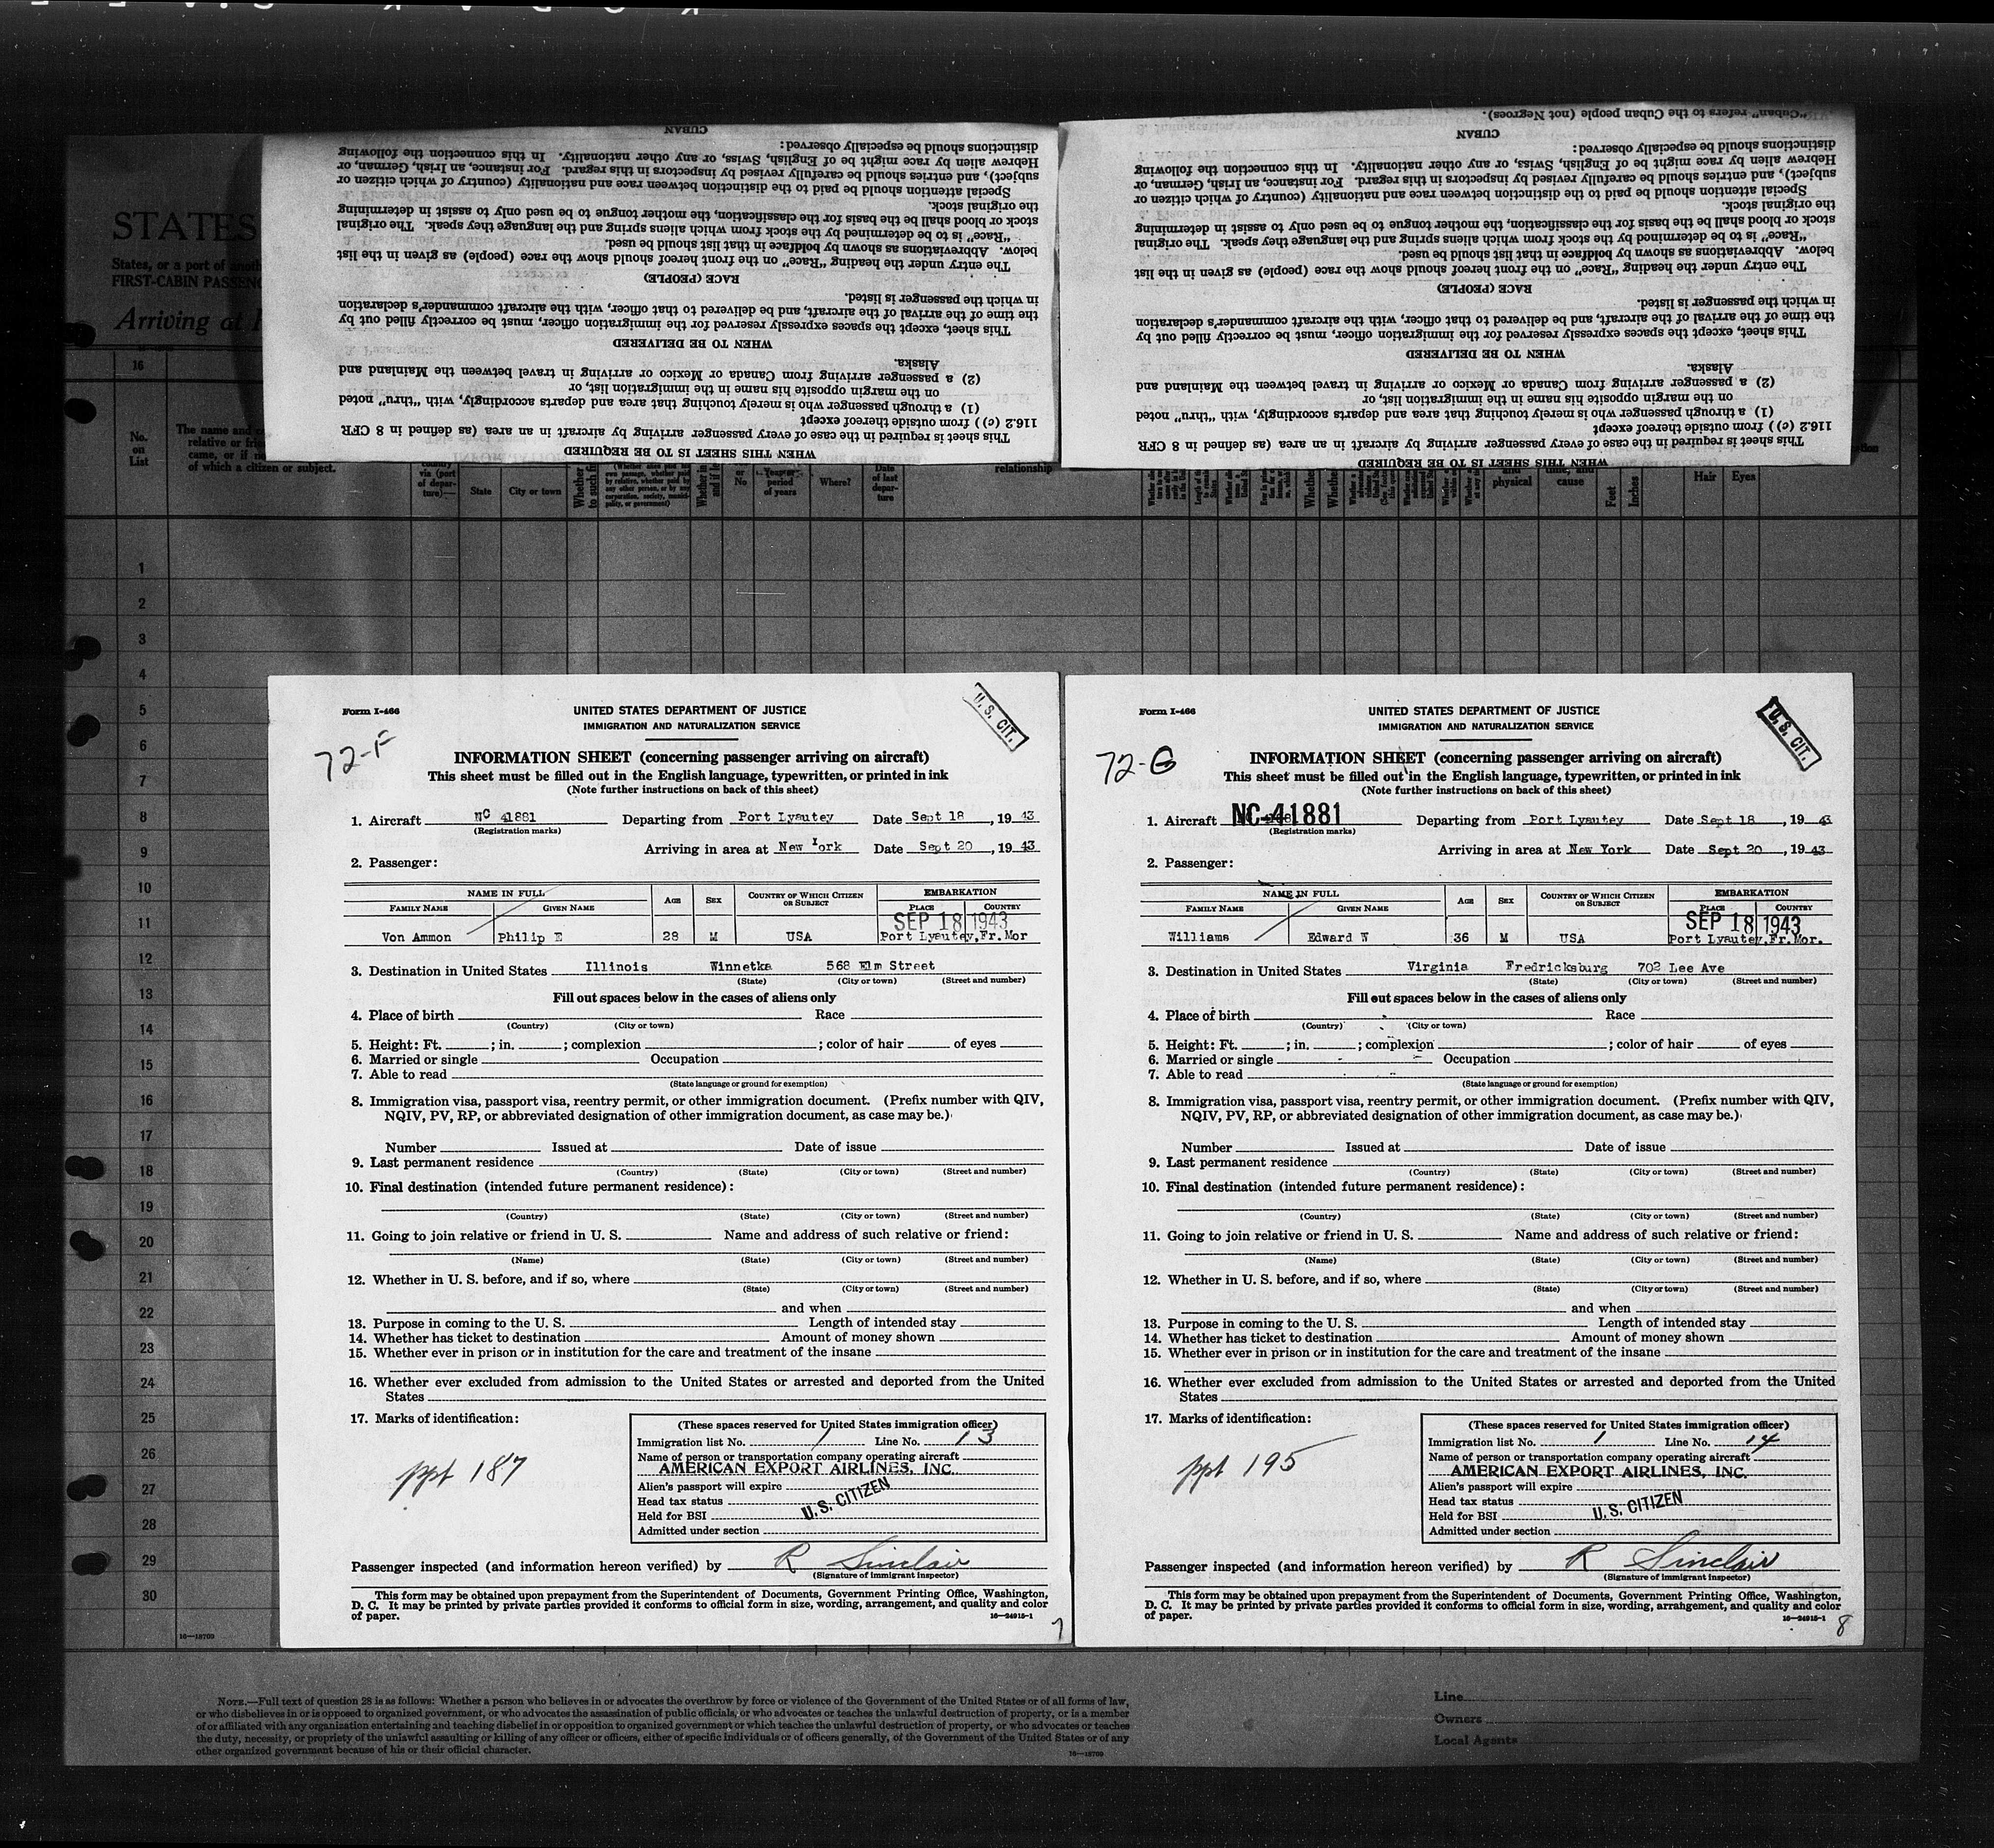 STATES
States, or a port of anoth
FIRST-CABIN PASSENG
Arriving at
16
No.
on
List
The name and
relative or frie
came, or if n
of which a citizen or subject.
via (port
of depar-
ture)—
State
City or town
or
No
period
of years
Where?
Date
of last
depar-
ture
relationship
and
physical
time, and
cause
Feet
Inches
Hair
Eyes
CUBAN
distinctions should be especially observed:
Hebrew alien by race might be of English, Swiss, or any other nationality. In this connection the following
subject), and entries should be carefully revised by inspectors in this regard. For instance, an Irish, German, or
Special attention should be paid to the distinction between race and nationality (country of which citizen or
the original stock.
stock or blood shall be the basis for the classification, the mother tongue to be used only to assist in determining
"Race" is to be determined by the stock from which aliens spring and the language they speak. The original
below. Abbreviations as shown by boldface in that list should be used.
The entry under the heading "Race" on the front hereof should show the race (people) as given in the list
RACE (PEOPLE)
in which the passenger is listed.
the time of the arrival of the aircraft, and be delivered to that officer, with the aircraft commander's declaration
This sheet, except the spaces expressly reserved for the immigration officer, must be correctly filled out by
WHEN TO BE DELIVERED
Alaska.
(2) a passenger arriving from Canada or Mexico or arriving in travel between the Mainland and
on the margin opposite his name in the immigration list, or
(1) a through passenger who is merely touching that area and departs accordingly, with "thru" noted
116.2 (c) ) from outside thereof except
This sheet is required in the case of every passenger arriving by aircraft in an area (as defined in 8 CFR
WHEN THIS SHEET IS TO BE REQUIRED
"Cuban" refers to the Cuban people (not Negroes).
CUBAN
distinctions should be especially observed:
Hebrew alien by race might be of English, Swiss, or any other nationality. In this connection the following
subject), and entries should be carefully revised by inspectors in this regard. For instance, an Irish, German, or
Special attention should be paid to the distinction between race and nationality (country of which citizen or
the original stock.
stock or blood shall be the basis for the classification, the mother tongue to be used only to assist in determining
"Race" is to be determined by the stock from which aliens spring and the language they speak. The original
below. Abbreviations as shown by boldface in that list should be used.
The entry under the heading "Race" on the front hereof should show the race (people) as given in the list
RACE (PEOPLE)
in which the passenger is listed.
the time of the arrival of the aircraft, and be delivered to that officer, with the aircraft commander's declaration
This sheet, except the spaces expressly reserved for the immigration officer, must be correctly filled out by
WHEN TO BE DELIVERED
Alaska.
(2) a passenger arriving from Canada or Mexico or arriving in travel between the Mainland and
on the margin opposite his name in the immigration list, or
(1) a through passenger who is merely touching that area and departs accordingly, with "thru" noted
116.2 (c) ) from outside thereof except
This sheet is required in the case of every passenger arriving by aircraft in an area (as defined in 8 CFR
WHEN THIS SHEET IS TO BE REQUIRED
1
2
3
4
5
6
7
8
9
10
11
12
13
14
15
16
17
18
19
20
21
22
23
24
25
26
27
28
29
30
16—18709
Form I-466
UNITED STATES DEPARTMENT OF JUSTICE
IMMIGRATION AND NATURALIZATION SERVICE
U. S. CIT.
72-F
INFORMATION SHEET (concerning passenger arriving on aircraft)
This sheet must be filled out in the English language, typewritten, or printed in ink
(Note further instructions on back of this sheet)
1. Aircraft NC 41881 Departing from Port Lyautey Date Sept 18, 19 43
(Registration marks)
Arriving in area at New York Date Sept 20, 19 43
2. Passenger:
NAME IN FULL AGE SEX COUNTRY OF WHICH CITIZEN OR SUBJECT EMBARKATION
FAMILY NAME GIVEN NAME PLACE COUNTRY
SEP 18 1943
Von Ammon Philip E 28 M USA Port Lyautey, Fr. Mor
3. Destination in United States Illinois Winnetka 568 Elm Street
(State) (City or town) (Street and number)
Fill out spaces below in the cases of aliens only
4. Place of birth Race
(Country) (City or town)
5. Height: Ft. ; in. ; complexion ; color of hair of eyes
6. Married or single Occupation
7. Able to read
(State language or ground for exemption)
8. Immigration visa, passport visa, reentry permit, or other immigration document. (Prefix number with QIV,
NQIV, PV, RP, or abbreviated designation of other immigration document, as case may be.)
Number Issued at Date of issue
9. Last permanent residence
(Country) (State) (City or town) (Street and number)
10. Final destination (intended future permanent residence):
(Country) (State) (City or town) (Street and number)
11. Going to join relative or friend in U. S. Name and address of such relative or friend:
(Name) (State) (City or town) (Street and number)
12. Whether in U. S. before, and if so, where
(State) (City or town) (Street and number)
and when
13. Purpose in coming to the U. S. Length of intended stay
14. Whether has ticket to destination Amount of money shown
15. Whether ever in prison or in institution for the care and treatment of the insane
16. Whether ever excluded from admission to the United States or arrested and deported from the United
States
17. Marks of identification:
ppt 187
(These spaces reserved for United States immigration officer)
Immigration list No. 1 Line No. 13
Name of person or transportation company operating aircraft
AMERICAN EXPORT AIRLINES, INC.
Alien's passport will expire
Head tax status
U. S. CITIZEN
Held for BSI
Admitted under section
Passenger inspected (and information hereon verified) by R Sinclair
(Signature of immigrant inspector)
This form may be obtained upon prepayment from the Superintendent of Documents, Government Printing Office, Washington,
D. C. It may be printed by private parties provided it conforms to official form in size, wording, arrangement, and quality and color
of paper.
16—24915-1
7
Form I-466
UNITED STATES DEPARTMENT OF JUSTICE
IMMIGRATION AND NATURALIZATION SERVICE
U. S. CIT.
72-G
INFORMATION SHEET (concerning passenger arriving on aircraft)
This sheet must be filled out in the English language, typewritten, or printed in ink
(Note further instructions on back of this sheet)
1. Aircraft NC-41881 Departing from Port Lyautey Date Sept 18, 19 43
(Registration marks)
Arriving in area at New York Date Sept 20, 19 43
2. Passenger:
NAME IN FULL AGE SEX COUNTRY OF WHICH CITIZEN OR SUBJECT EMBARKATION
FAMILY NAME GIVEN NAME PLACE COUNTRY
SEP 18 1943
Williams Edward W 36 M USA Port Lyautey, Fr. Mor.
3. Destination in United States Virginia Fredricksburg 702 Lee Ave
(State) (City or town) (Street and number)
Fill out spaces below in the cases of aliens only
4. Place of birth Race
(Country) (City or town)
5. Height: Ft. ; in. ; complexion ; color of hair of eyes
6. Married or single Occupation
7. Able to read
(State language or ground for exemption)
8. Immigration visa, passport visa, reentry permit, or other immigration document. (Prefix number with QIV,
NQIV, PV, RP, or abbreviated designation of other immigration document, as case may be.)
Number Issued at Date of issue
9. Last permanent residence
(Country) (State) (City or town) (Street and number)
10. Final destination (intended future permanent residence):
(Country) (State) (City or town) (Street and number)
11. Going to join relative or friend in U. S. Name and address of such relative or friend:
(Name) (State) (City or town) (Street and number)
12. Whether in U. S. before, and if so, where
(State) (City or town) (Street and number)
and when
13. Purpose in coming to the U. S. Length of intended stay
14. Whether has ticket to destination Amount of money shown
15. Whether ever in prison or in institution for the care and treatment of the insane
16. Whether ever excluded from admission to the United States or arrested and deported from the United
States
17. Marks of identification:
ppt 195
(These spaces reserved for United States immigration officer)
Immigration list No. 1 Line No. 14
Name of person or transportation company operating aircraft
AMERICAN EXPORT AIRLINES, INC.
Alien's passport will expire
Head tax status
U. S. CITIZEN
Held for BSI
Admitted under section
Passenger inspected (and information hereon verified) by R Sinclair
(Signature of immigrant inspector)
This form may be obtained upon prepayment from the Superintendent of Documents, Government Printing Office, Washington,
D. C. It may be printed by private parties provided it conforms to official form in size, wording, arrangement, and quality and color
of paper.
16—24915-1
8
NOTE.—Full text of question 28 is as follows: Whether a person who believes in or advocates the overthrow by force or violence of the Government of the United States or of all forms of law,
or who disbelieves in or is opposed to organized government, or who advocates the assassination of public officials, or who advocates or teaches the unlawful destruction of property, or is a member
of or affiliated with any organization entertaining and teaching disbelief in or opposition to organized government or which teaches the unlawful destruction of property, or who advocates or teaches
the duty, necessity, or propriety of the unlawful assaulting or killing of any officer or officers, either of specific individuals or of officers generally, of the Government of the United States or of any
other organized government because of his or their official character.
16—18709
Line
Owners
Local Agents